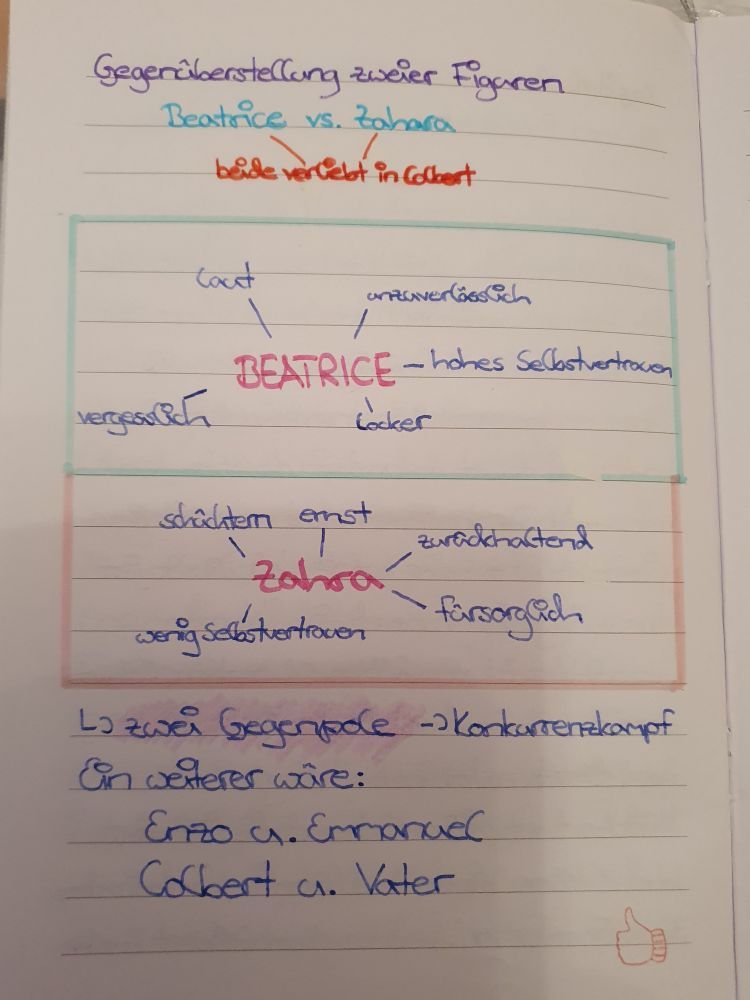 Gegenüberstellung zweier Figuren
Beatrice vs. Zahara
beide verliebt in Colbert
laut
unzuverlässlich
BEATRICE – hohes Selbstvertrauen
vergesslich
locker
schüchtern ernst
zurückhaltend
Zahra
fürsorglich
wenig Selbstvertrauen
↳ zwei Gegenpole → Konkurrenzkampf
Ein weiterer wäre:
Enzo u. Emmanuel
Colbert u. Vater